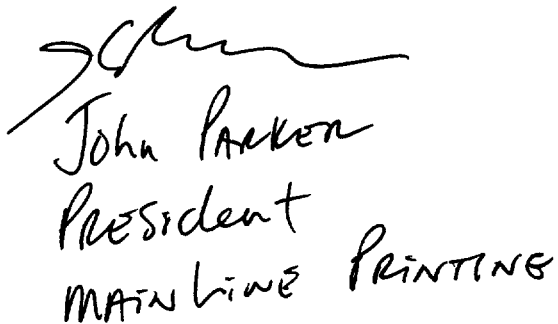 John Parker
President
Mainline Printing